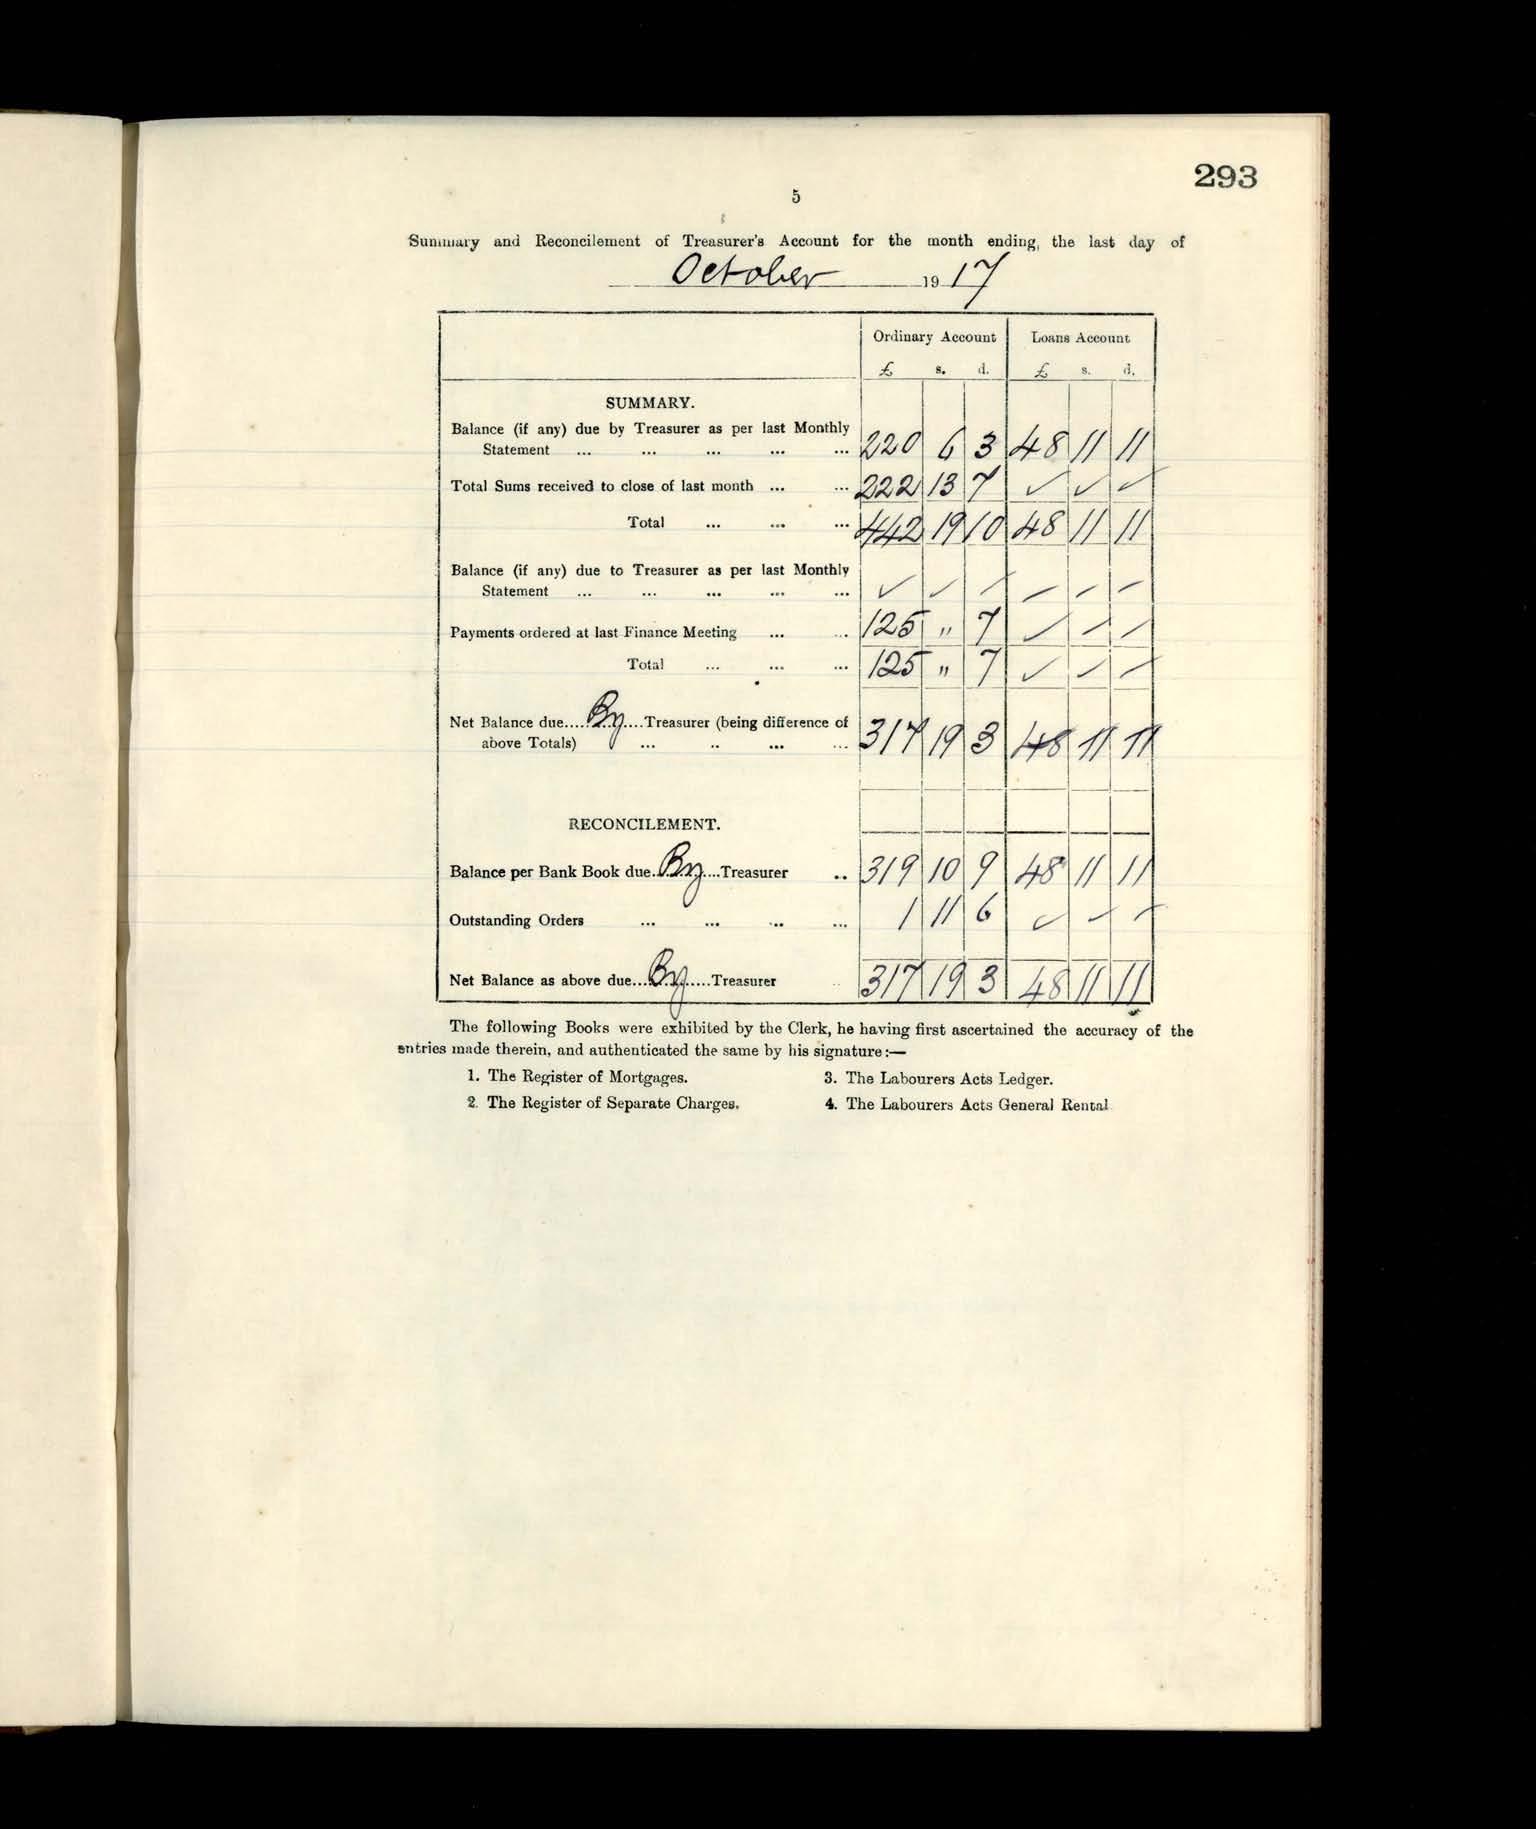 293
5
Summary and Reconcilement of Treasurer's Account for the month ending, the last day of
October 1917
Ordinary Account Loans Account
£ s. d. £ s. d.
SUMMARY.
Balance (if any) due by Treasurer as per last Monthly
Statement ... ... ... ... ... 220 6 3 48 11 11
Total Sums received to close of last month ... ... 222 13 7 ✓ ✓ ✓
Total ... ... ... 442 19 10 48 11 11
Balance (if any) due to Treasurer as per last Monthly
Statement ... ... ... ... ... ✓ ✓ – – – –
Payments ordered at last Finance Meeting ... ... 125 " 7 ✓ – –
Total ... ... ... 125 " 7 ✓ ✓ –
Net Balance due....By....Treasurer (being difference of
above Totals) ... .. ... ... 317 19 3 48 11 11
RECONCILEMENT.
Balance per Bank Book due..By....Treasurer .. 319 10 9 48 11 11
Outstanding Orders ... ... ... ... 1 11 6 ✓ – –
Net Balance as above due...By.....Treasurer .. 317 19 3 48 11 11
The following Books were exhibited by the Clerk, he having first ascertained the accuracy of the
entries made therein, and authenticated the same by his signature:—
1. The Register of Mortgages. 3. The Labourers Acts Ledger.
2. The Register of Separate Charges. 4. The Labourers Acts General Rental.